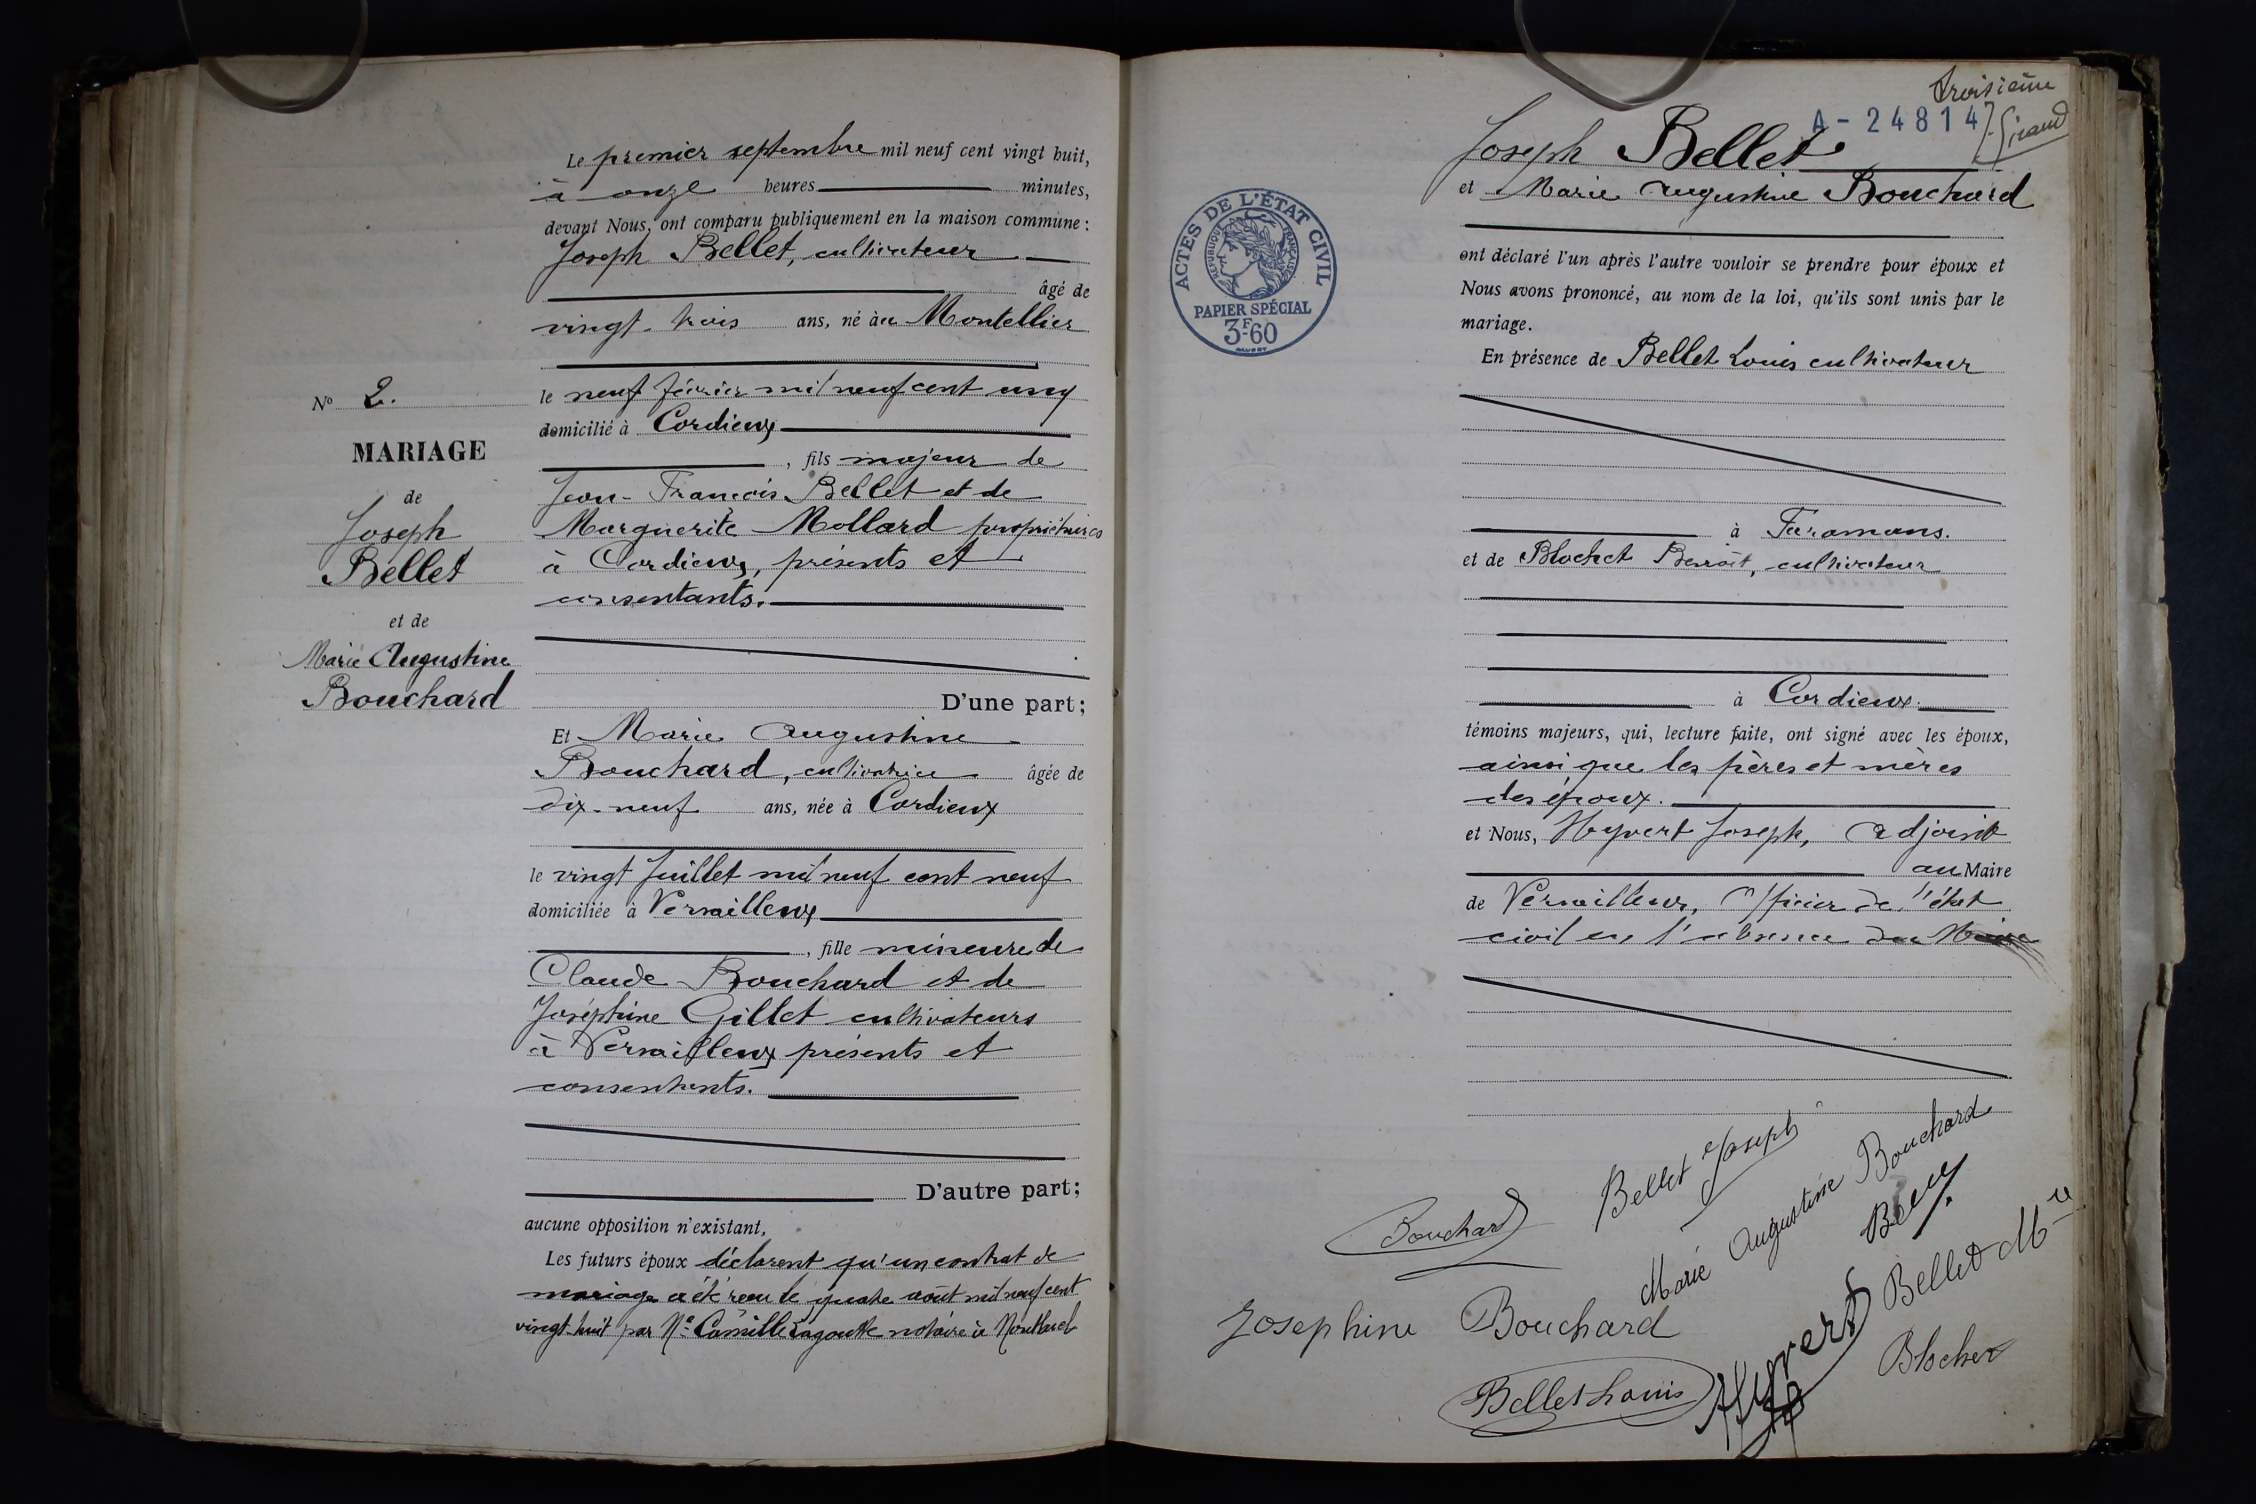 Le premier septembre mil neuf cent vingt huit,
à onze heures minutes,
devant Nous, ont comparu publiquement en la maison commune :
Joseph Bellet, cultivateur
âgé de
vingt-trois ans, né au Montellier
le neuf février mil neuf cent cinq
domicilié à Cordieux
, fils majeur de
Jean-François Bellet et de
Marguerite Mollard propriétaires
à Cordieux, présents et
consentants.
D'une part ;
Et Marie Augustine
Bouchard, cultivatrice âgée de
dix-neuf ans, née à Cordieux
le vingt Juillet mil neuf cent neuf
domiciliée à Versailleux
, fille mineure de
Claude Bouchard et de
Joséphine Gillet cultivateurs
à Versailleux présents et
consentants.
D'autre part ;
aucune opposition n'existant,
Les futurs époux déclarent qu'un contrat de
mariage a été reçu le quatre août mil neuf cent
vingt-huit par Me Camille Lagoutte notaire à Montluel
No 2.
MARIAGE
de
Joseph
Bellet
et de
Marie Augustine
Bouchard
troisième
A-24814
Giraud
Joseph Bellet
et Marie Augustine Bouchard
ont déclaré l'un après l'autre vouloir se prendre pour époux et
Nous avons prononcé, au nom de la loi, qu'ils sont unis par le
mariage.
En présence de Bellet Louis cultivateur
à Faramans.
et de Blochet Benoît, cultivateur
à Cordieux.
témoins majeurs, qui, lecture faite, ont signé avec les époux,
ainsi que les pères et mères
des époux.
et Nous, Hyvert Joseph, adjoint
au Maire
de Versailleux, Officier de l'état
civil en l'absence du Maire
ACTES DE L'ÉTAT CIVIL
RÉPUBLIQUE FRANÇAISE
PAPIER SPÉCIAL
3F60
Bouchard
Bellet Joseph
Marie Augustine Bouchard
Bellet Mte
Josephine Bouchard
Bellet Louis
Hyvert
Blochet